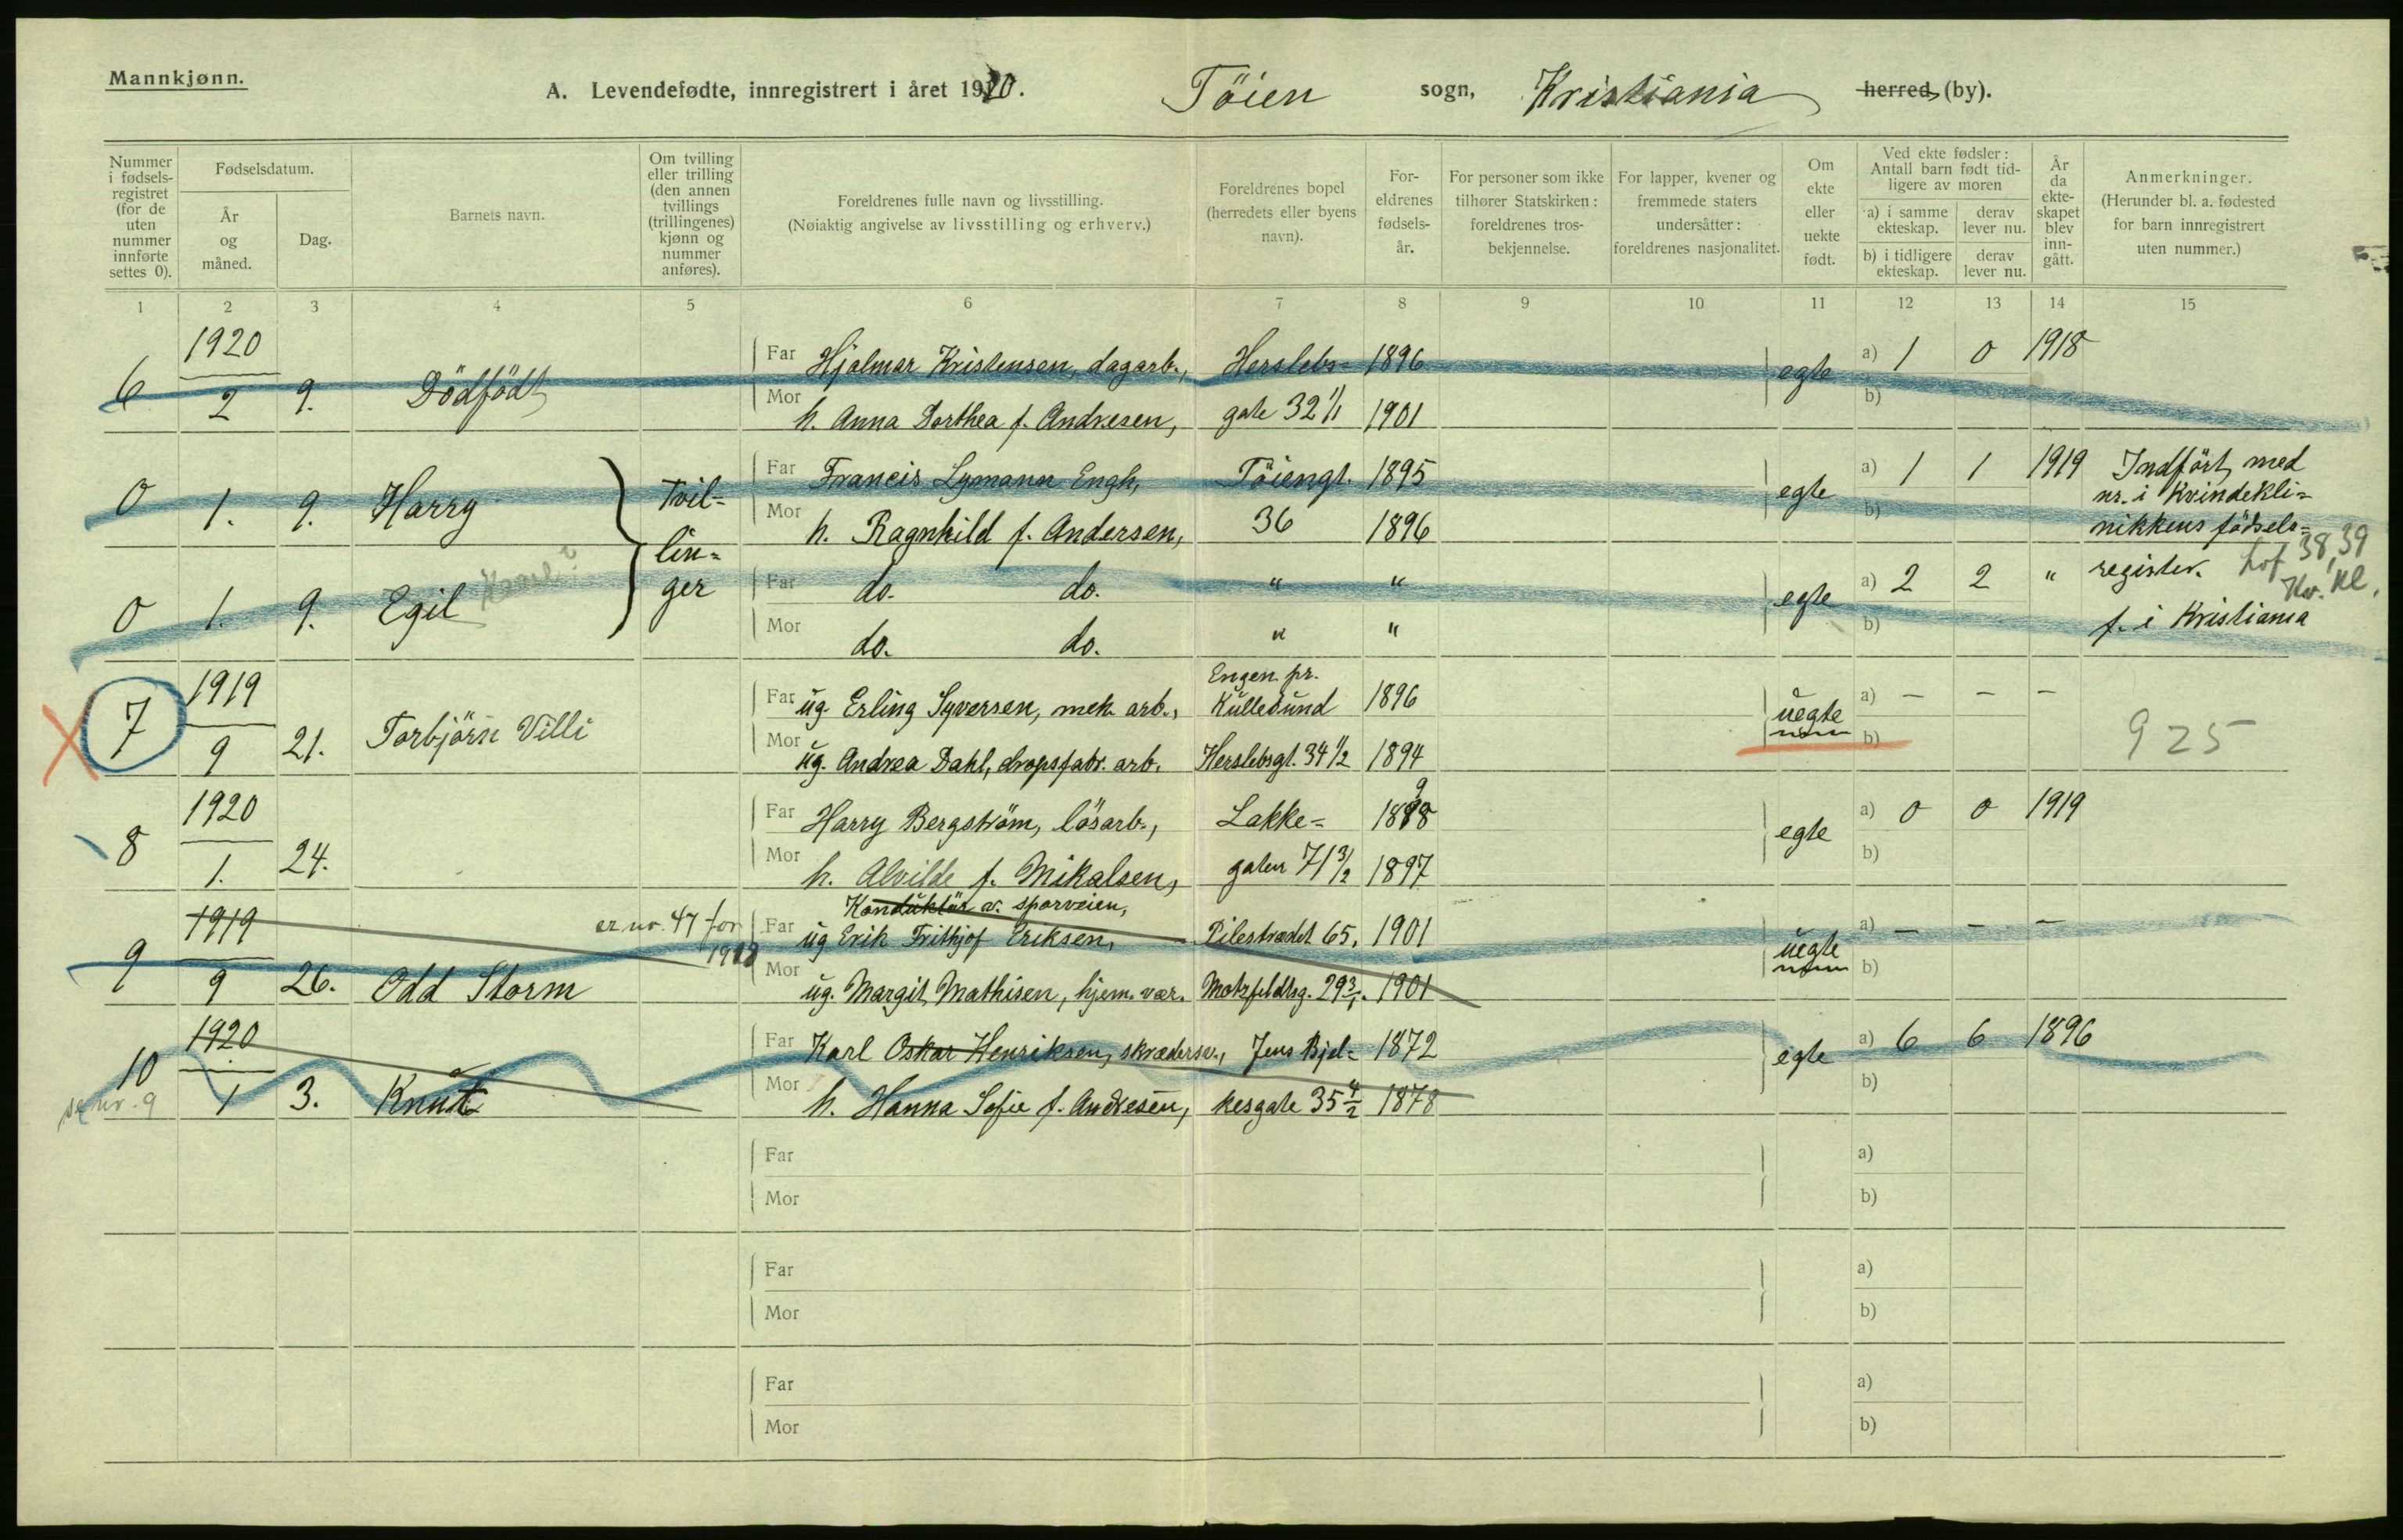 Mannkjønn.
A. Levendefødte, innregistrert i året 1920. Töien sogn, Kristiania herred (by).
Nummer i fødselsregistret (for de uten nummer innførte settes 0).
Fødselsdatum.
År og måned.
Dag.
Barnets navn.
Om tvilling eller trilling (den annen tvillings (trillingenes) kjønn og nummer anføres).
Foreldrenes fulle navn og livsstilling.
(Nøiaktig angivelse av livsstilling og erhverv.)
Foreldrenes bopel (herredets eller byens navn).
Foreldrenes fødselsår.
For personer som ikke tilhører Statskirken: foreldrenes trosbekjennelse.
For lapper, kvener og fremmede staters undersåtter: foreldrenes nasjonalitet.
Om ekte eller uekte født.
Ved ekte fødsler: Antall barn født tidligere av moren
a) i samme ekteskap. derav lever nu.
b) i tidligere ekteskap. derav lever nu.
År da ekteskapet blev inngått.
Anmerkninger.
(Herunder bl. a. fødested for barn innregistrert uten nummer.)
1 2 3 4 5 6 7 8 9 10 11 12 13 14 15
6 1920 2 9. Dödfödt
Far Hjalmar Kristensen, dagarb., Herslebs= 1896 egte a) 1 0 1918
Mor h. Anna Dorthea f. Andresen, gate 32 1/1 1901 b)
0 1. 9. Harry Tvil=
Far Francis Lymann Engh, Töiengt. 1895 egte a) 1 1 1919 Indfört med
nr. i Kvindekli=
Mor h. Ragnhild f. Andersen, 36 1896 b) nikkens födsels=
lin=
0 1. 9. Egil ger
Far do. do. " " egte a) 2 2 " register. 38,39
Kv. Kl.
Mor do. do. " " b) f. i Kristiania
7 1919 9 21. Torbjörn Villi
Engen pr.
Far ug. Erling Syversen, mek. arb., Kullebund 1896 uegte a) – – –
Mor ug. Andrea Dahl, dropsfabr. arb. Herslebsgt. 34 1/2 1894 b) 925
8 1920 1. 24.
Far Harry Bergström, lösarb., Lakke= 1898 egte a) 0 0 1919
Mor h. Alvilde f. Mikalsen, gaten 71 3/2 1897 b)
Konduktör v. sporveien,
9 1919 9 26. Odd Storm er nr. 47 for 1919
Far ug. Erik Frithjof Eriksen, Pilestrædet 65, 1901 uegte a) – – –
Mor ug. Margit Mathisen, hjem. vær. Motzfeldtsg. 29 3/1. 1901 b)
10 se nr. 9 1920 1 3. Knut
Far Karl Oskar Henriksen, skræddersv., Jens Bjel= 1872 egte a) 6 6 1896
Mor h. Hanna Sofie f. Andresen, kesgate 35 4/2 1878 b)
Far a)
Mor b)
Far a)
Mor b)
Far a)
Mor b)